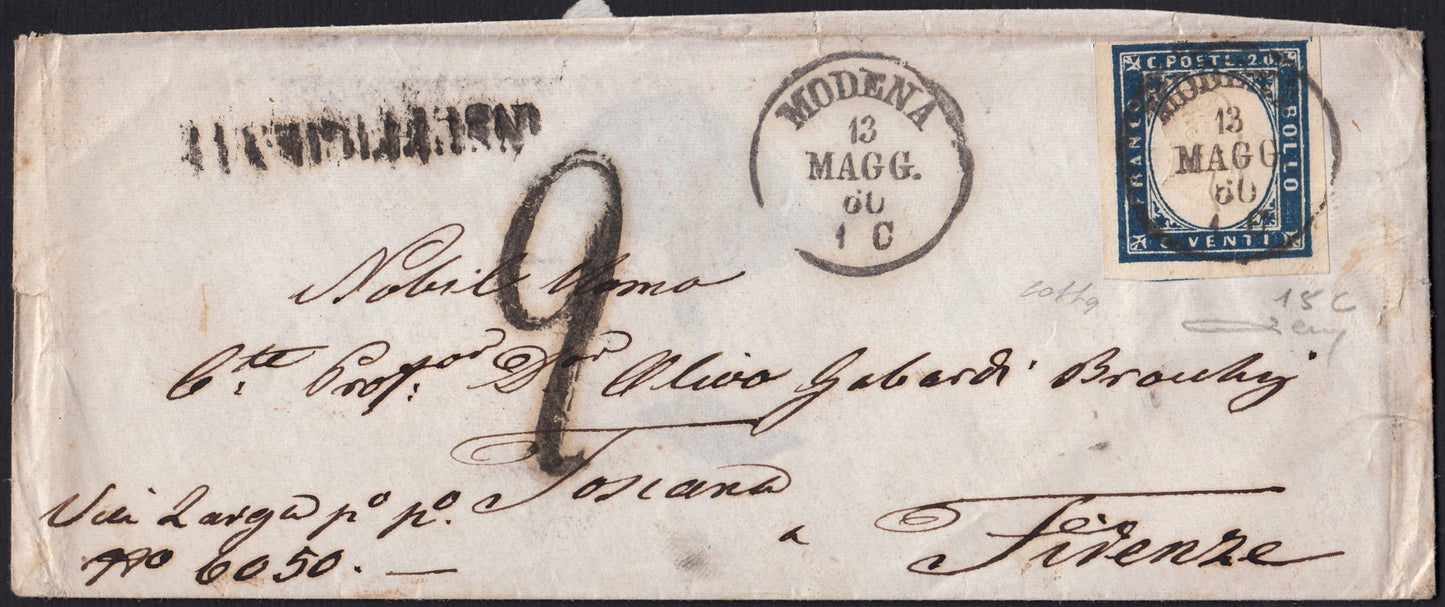 MODENA
13
MAGG.
60
1 C
C. POSTE 20
FRANCO
BOLLO
C. VENTI
MODENA
13
MAGG
60
9
Nobil Uomo
C.te Prof.or D.or Olivo Gabardi Brocchi
Toscana
Via Larga p.o p.o.
6050. —
a Firenze
15 C